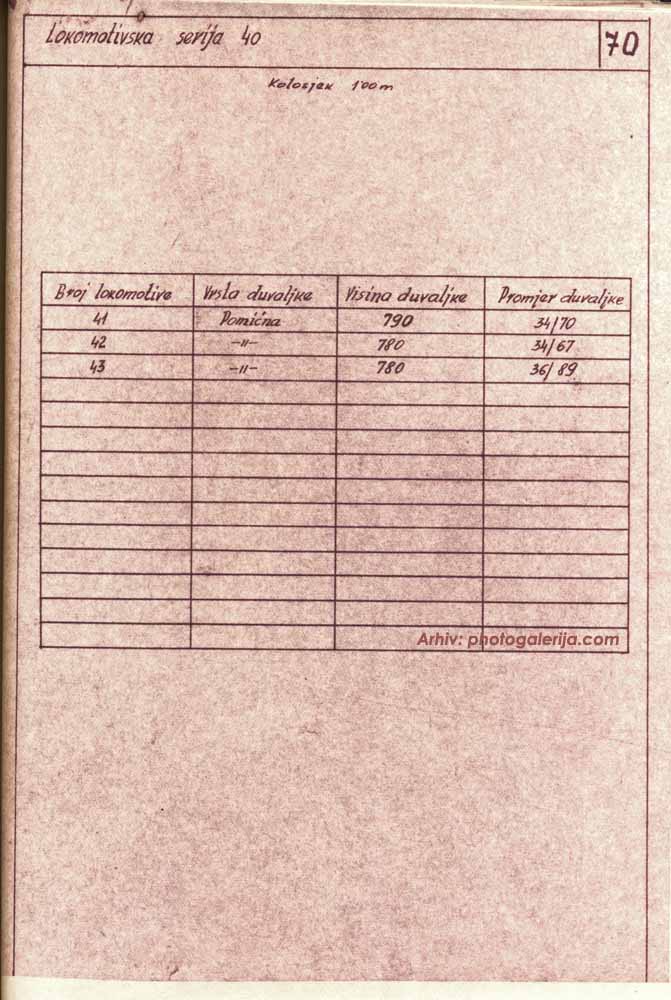 Lokomotivska serija 40
70
Kolosjek 1'00 m
Broj lokomotive Vrsta duvaljke Visina duvaljke Promjer duvaljke
41 Pomična 790 34/70
42 —〃— 780 34/67
43 —〃— 780 36/89
Arhiv: photogalerija.com